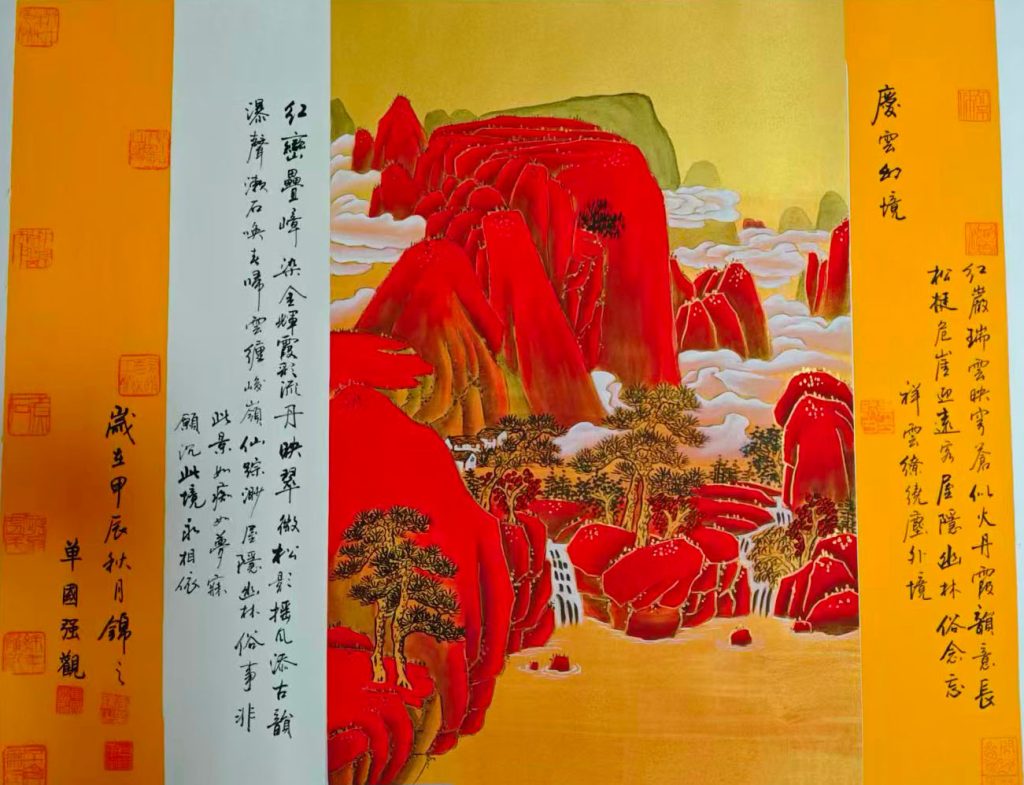 慶雲幻境
红巖瑞雲映穹蒼似火丹霞韻意長
松挺危崖迎遠客屋隱幽林 俗念忘
祥雲繚繞塵外境
红巒疊嶂 染金輝霞彩流丹映翠微松影摇风添古韻
瀑聲漱石唤春歸雲纏峻嶺仙踪渺屋隱幽林俗事非
此景如痴如夢寐
願沉此境永相依
歲在甲辰秋月錦之
单國强觀